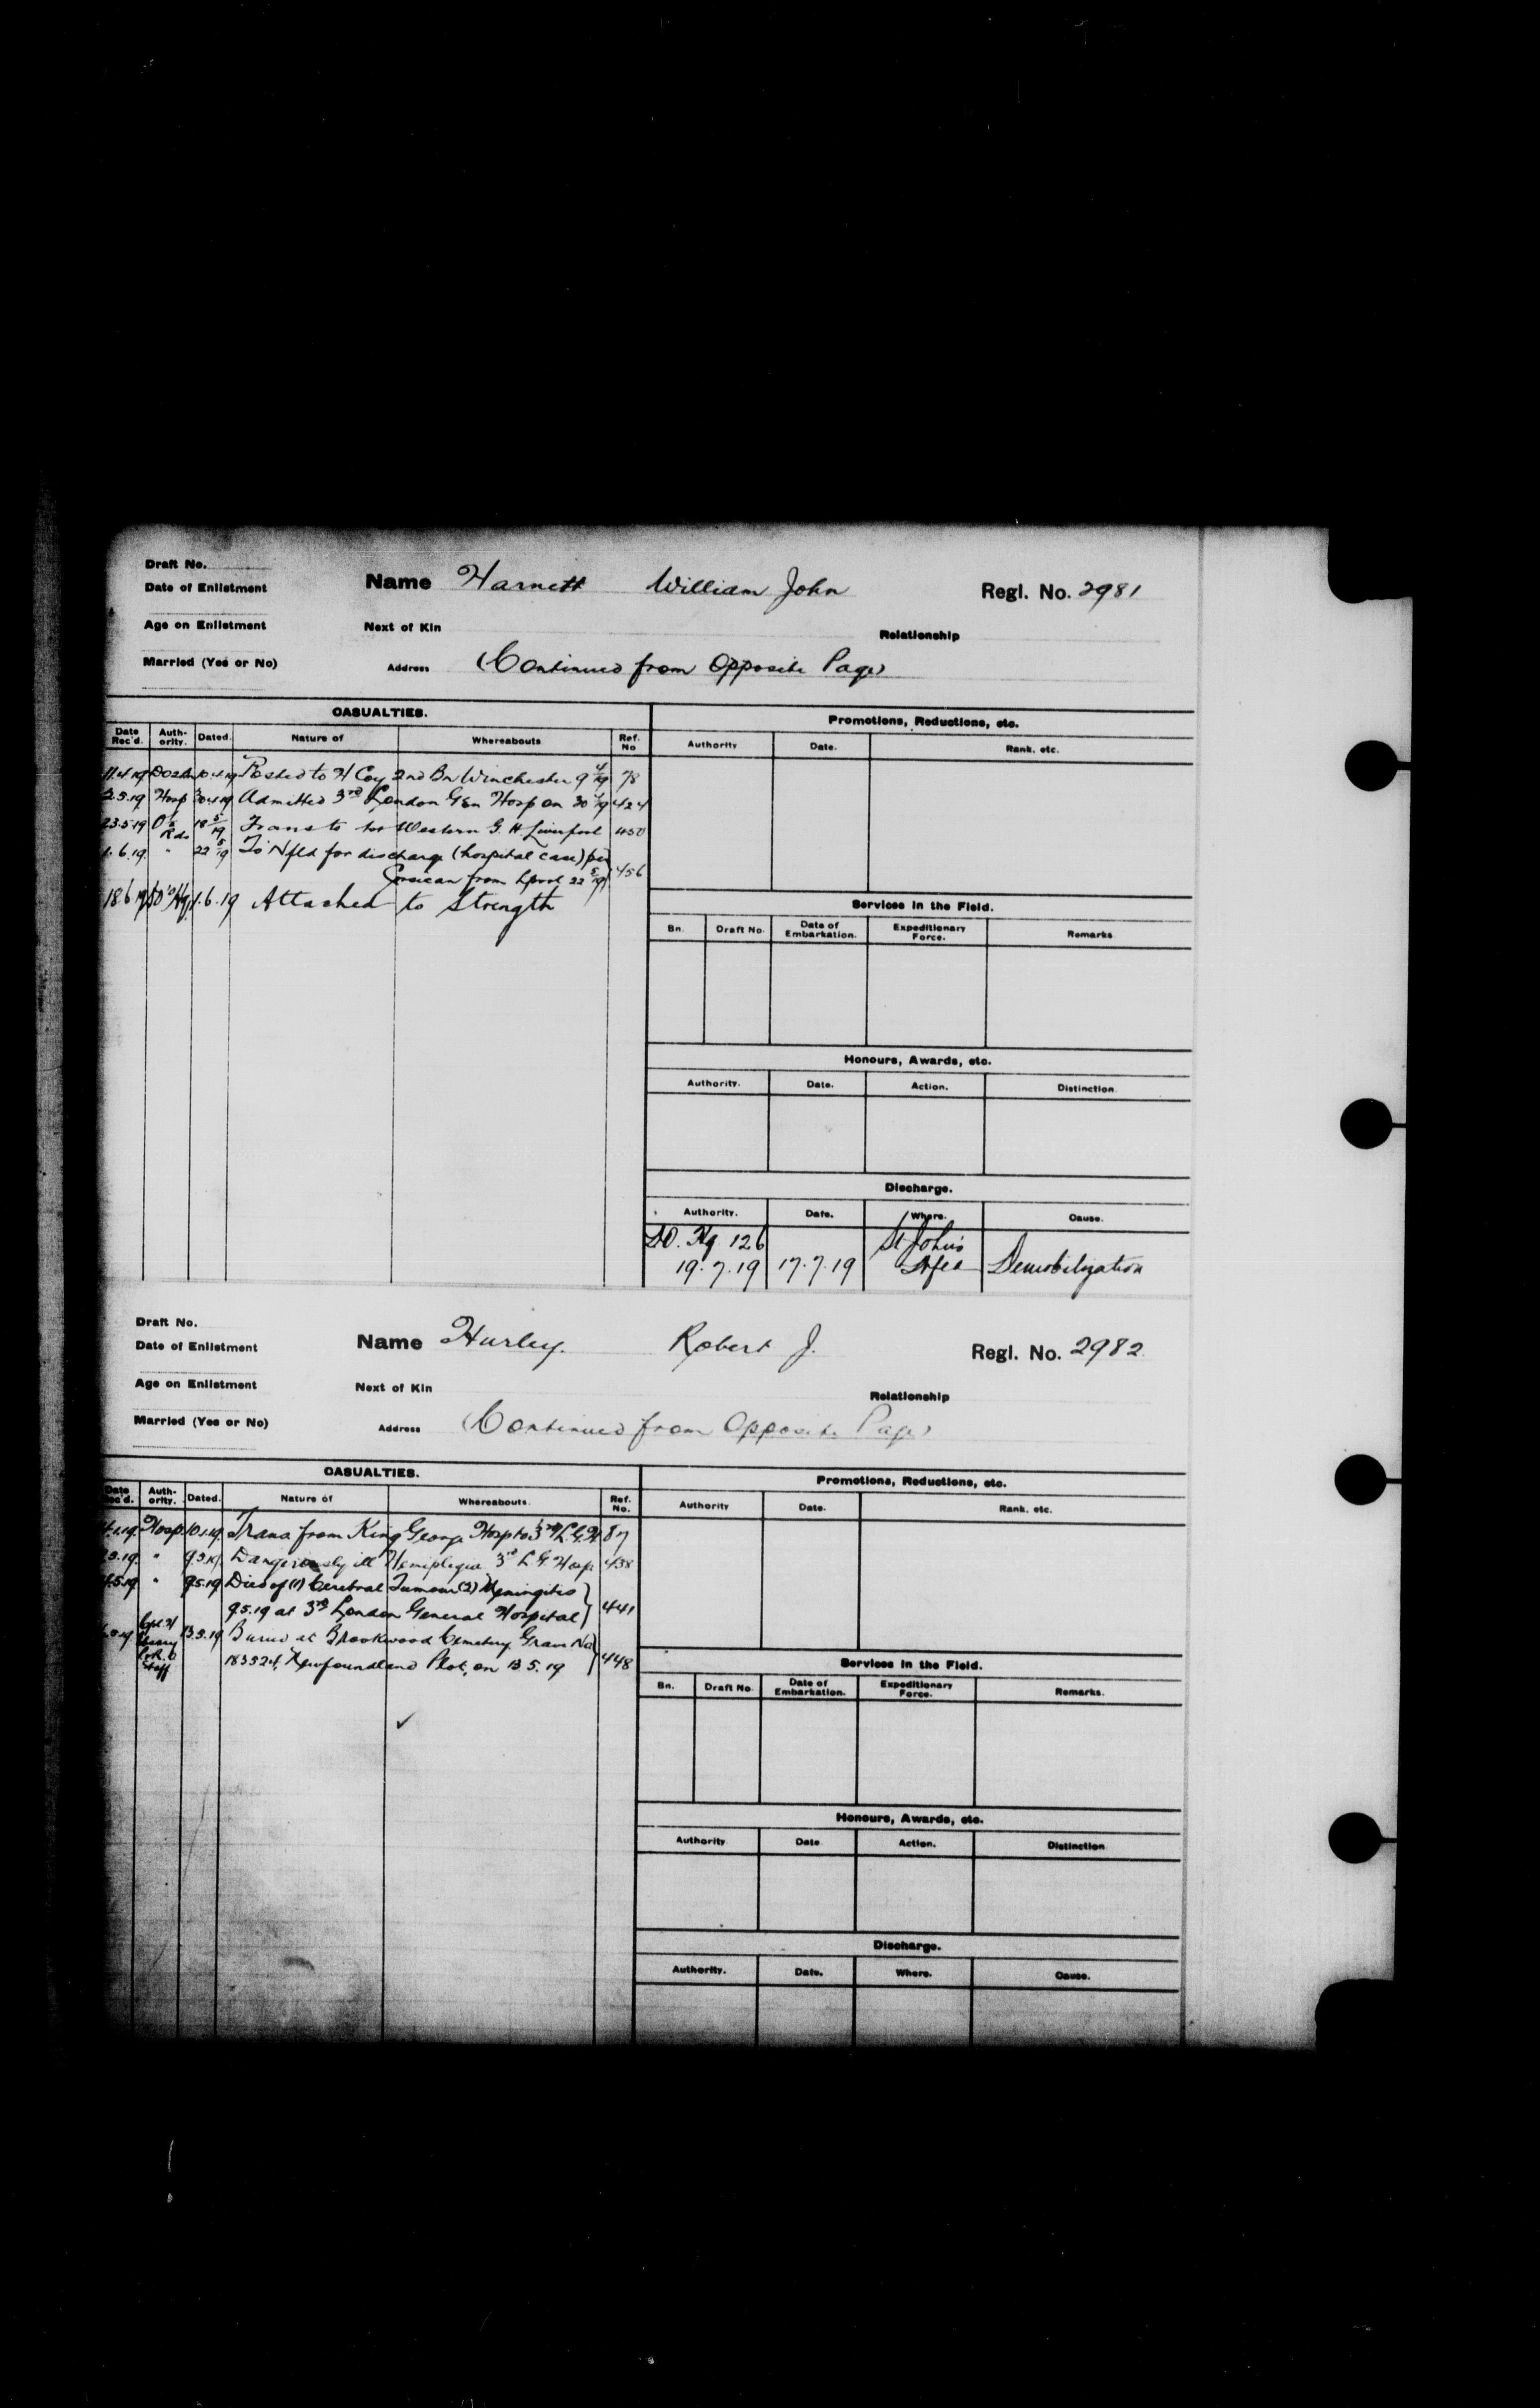 Draft No.
Date of Enlistment
Name Harnett William John
Regl. No. 2981
Age on Enlistment
Next of Kin
Relationship
Married (Yes or No)
Address (Continued from Opposite Page)
CASUALTIES.
Promotions, Reductions, etc.
Date Rec'd. Auth-ority. Dated. Nature of Whereabouts Ref. No
Authority Date. Rank. etc.
11.4.19 10.4.19 Posted to H Coy 2nd Bn Winchester 9 4/19 78
2.5.19 Hosp 30.4.19 Admitted 3rd London Gen Hosp on 30 4/19 424
23.5.19 18 5/19 Trans to Western G. H. Liverpool 450
1.6.19 " 22 5/19 To Nfld for discharge (hospital case) per
Corsican from Lpool 22 5/19 456
18.6.19 1.6.19 Attached to Strength
Services in the Field.
Bn. Draft No. Date of Embarkation. Expeditionary Force. Remarks
Honours, Awards, etc.
Authority. Date. Action. Distinction.
Discharge.
Authority. Date. Where. Cause.
DO. Hq 126 St John's
19.7.19 17.7.19 Nfld Demobilization
Draft No.
Date of Enlistment
Name Hurley. Robert J.
Regl. No. 2982
Age on Enlistment
Next of Kin
Relationship
Married (Yes or No)
Address (Continued from Opposite Page)
CASUALTIES.
Promotions, Reductions, etc.
Date Rec'd. Auth-ority. Dated. Nature of Whereabouts. Ref. No.
Authority Date. Rank. etc.
Hosp 10.1.19 Trans from King George Hosp to 3rd L.G.H 87
" 9.5.19 Dangerously ill Hemiplegia 3rd L G Hosp 438
" 9.5.19 Died of (1) Cerebral Tumour (2) Meningitis
9.5.19 at 3rd London General Hospital 441
13.5.19 Buried at Brookwood Cemetery Grave No
183524, Newfoundland Plot, on 13.5.19 448
Staff
Services in the Field.
Bn. Draft No. Date of Embarkation. Expeditionary Force. Remarks.
Honours, Awards, etc.
Authority Date Action. Distinction
Discharge.
Authority. Date. Where. Cause.